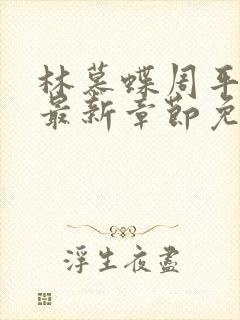 林慕蝶周平
最新章节免
浮生夜尽